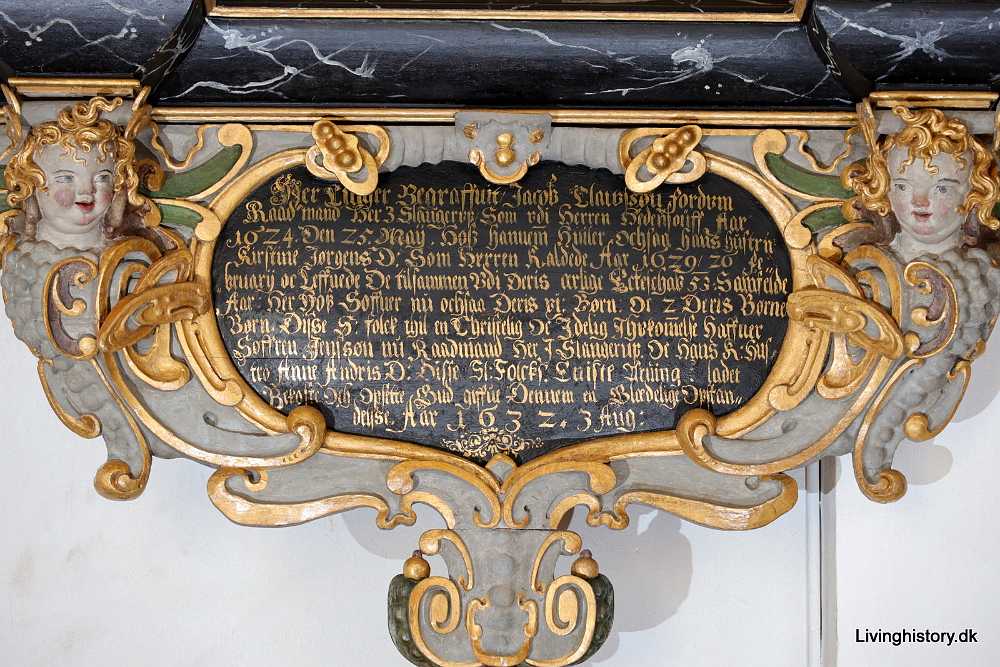 Her Ligger Begraffuit Jacob Clausson fordum
Raadmand Her I Slangerup Som udi Herren Hedensouff Aar
1624. Den 25. May. Hoß hannem Huiler Ochsaa hans Hustru
Kirstine Jorgens D: Som Herren Kaldede Aar 1629/26
bruarij oc Leffuede De tilsammen Udi Deris erlige Ecteschab 53 Samfelde
Aar: Her Hoß Soffuer nu ochsaa Deris Børn. Oc 2 Deris Børne
Børn. Disse S: folck thil en Christelig Oc Idelig Ihukomelse Haffuer
Soffren Jensson nu Raadmand Her I Slangerup Oc Hans K: Hus
tru Anne Andris D: Disse Sl: Folcks Eniste Aruing ladet
Bekoste Och Opsette Gud giffue Dennem en Glædelig Opstan
delse. Aar 1632. 3 Aug:
Livinghistory.dk